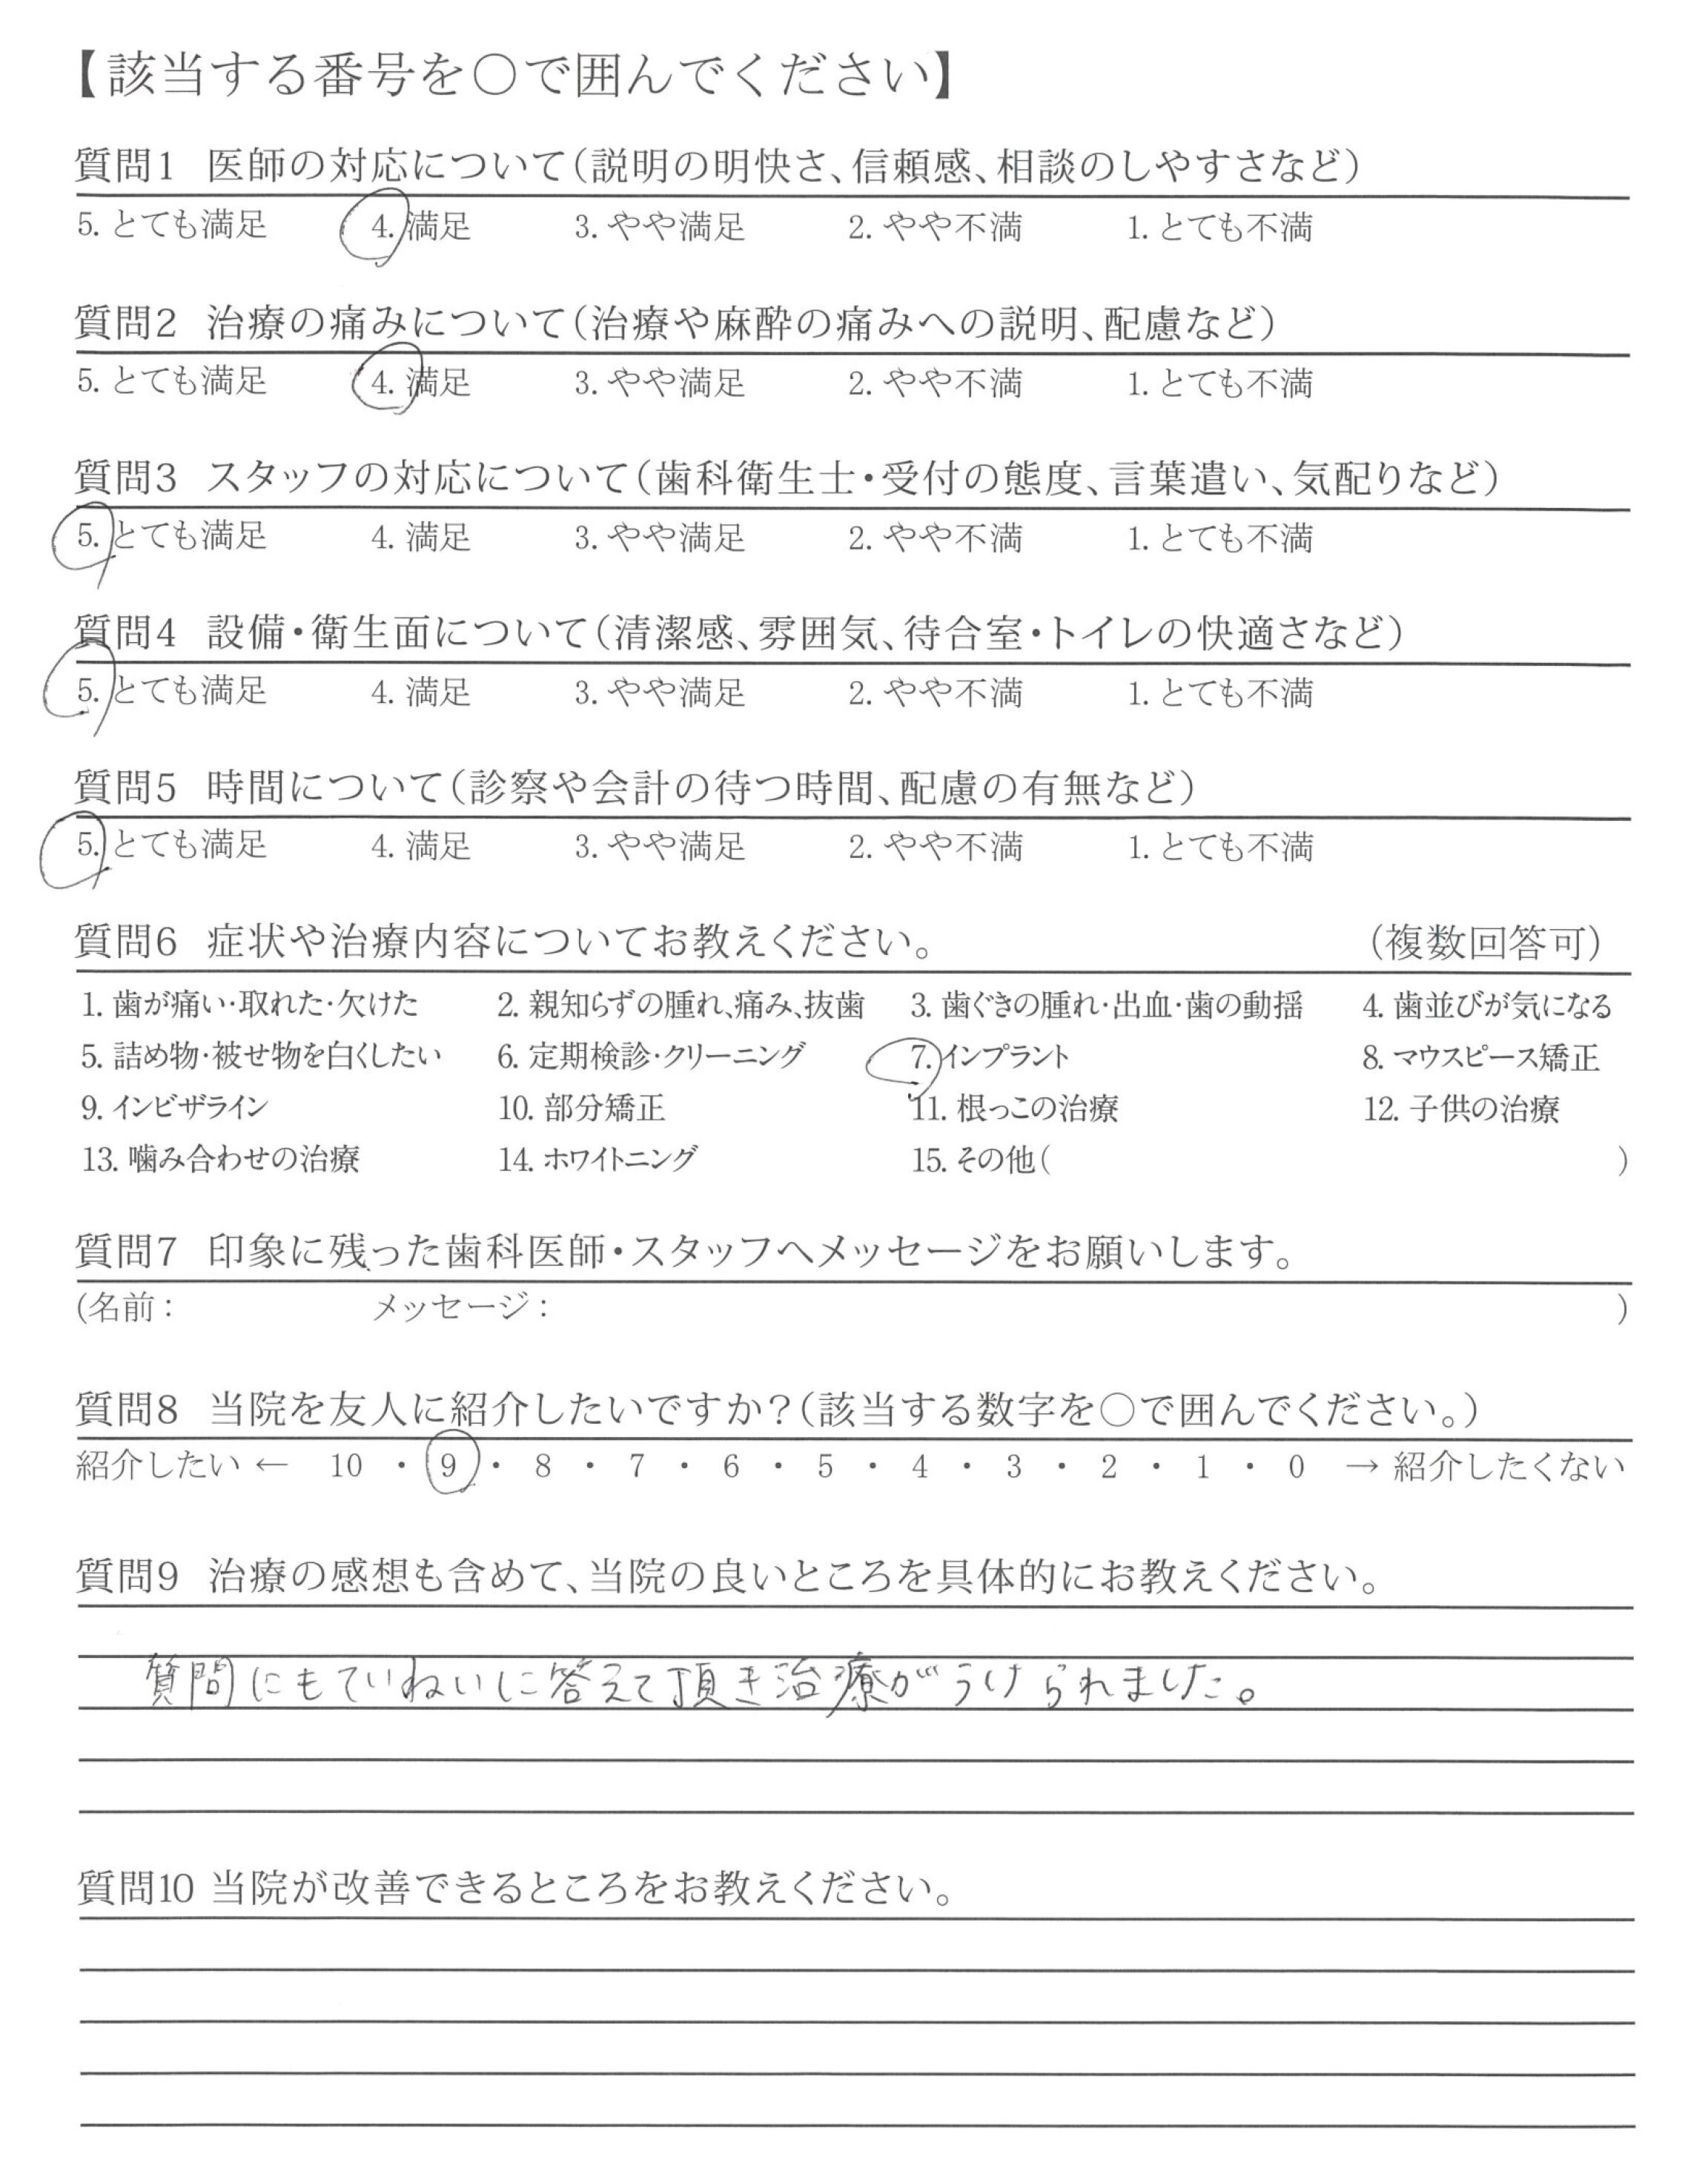 【該当する番号を○で囲んでください】
質問1 医師の対応について(説明の明快さ、信頼感、相談のしやすさなど)
5. とても満足 4. 満足 3. やや満足 2. やや不満 1. とても不満
質問2 治療の痛みについて(治療や麻酔の痛みへの説明、配慮など)
5. とても満足 4. 満足 3. やや満足 2. やや不満 1. とても不満
質問3 スタッフの対応について(歯科衛生士・受付の態度、言葉遣い、気配りなど)
5. とても満足 4. 満足 3. やや満足 2. やや不満 1. とても不満
質問4 設備・衛生面について(清潔感、雰囲気、待合室・トイレの快適さなど)
5. とても満足 4. 満足 3. やや満足 2. やや不満 1. とても不満
質問5 時間について(診察や会計の待つ時間、配慮の有無など)
5. とても満足 4. 満足 3. やや満足 2. やや不満 1. とても不満
質問6 症状や治療内容についてお教えください。 (複数回答可)
1. 歯が痛い・取れた・欠けた 2. 親知らずの腫れ、痛み、抜歯 3. 歯ぐきの腫れ・出血・歯の動揺 4. 歯並びが気になる
5. 詰め物・被せ物を白くしたい 6. 定期検診・クリーニング 7. インプラント 8. マウスピース矯正
9. インビザライン 10. 部分矯正 11. 根っこの治療 12. 子供の治療
13. 噛み合わせの治療 14. ホワイトニング 15. その他( )
質問7 印象に残った歯科医師・スタッフへメッセージをお願いします。
(名前: メッセージ: )
質問8 当院を友人に紹介したいですか?(該当する数字を○で囲んでください。)
紹介したい ← 10 ・ 9 ・ 8 ・ 7 ・ 6 ・ 5 ・ 4 ・ 3 ・ 2 ・ 1 ・ 0 → 紹介したくない
質問9 治療の感想も含めて、当院の良いところを具体的にお教えください。
質問にもていねいに答えて頂き治療がうけられました。
質問10 当院が改善できるところをお教えください。